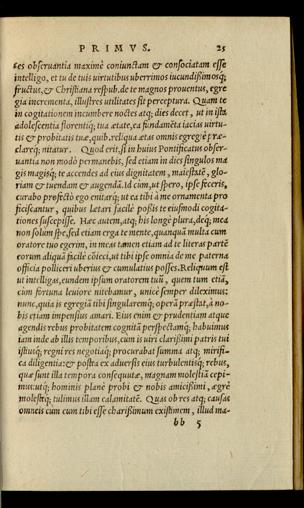 PRIMVS. 25
ces obseruantia maximè coniunctam & consociatam esse
intelligo, et tu de tuis uirtutibus uberrimos iucundißimosq́;
fructus, & Christiana respub. de te magnos prouentus, egre
gia incrementa, illustres utilitates sit perceptura. Quam te
in cogitationem incumbere noctes atq; dies decet, ut in ista
adolescentia florentiq́; tua ætate, ea fundamēta iactas uirtu-
tis & probitatis tuæ, quib. reliqua ætas omnis egregiè præ-
clareq́; nitatur. Quod erit, si in huius Pontificatus obser-
uantia non modò permanebis, sed etiam in dies singulos ma
gis magisq́; te accendes ad eius dignitatem, maiestatē, glo-
riam & tuendam & augendā. Id cùm, ut spero, ipse feceris,
curabo profectò ego enitarq́; ut ea tibi à me ornamenta pro
ficiscantur, quibus lætari facilè poßis te eiusmodi cogita-
tiones suscepisse. Hæc autem, atq; his longè plura, deq́; mea
non solùm spe, sed etiam erga te mente, quanquā multa cum
oratore tuo egerim, in meas tamen etiam ad te literas partē
eorum aliquā facilè cōieci, ut tibi ipse omnia de me paterna
officia polliceri uberius & cumulatius posses. Reliquum est
ut intelligas, eundem ipsum oratorem tuū, quem tum etiā,
cùm fortuna leuiore nitebamur, unicè semper dileximus:
nunc, quia is egregiā tibi singularemq́; operā præstat, à no-
bis etiam impensius amari. Eius enim & prudentiam atque
agendis rebus probitatem cognitā perspectamq́; habuimus
iam inde ab illis temporibus, cum is uiri clarißimi patris tui
istiusq́; regni res negotiaq́; procurabat summa atq; mirifi-
ca diligentia: & postea ex aduersis eius turbulentisq́; rebus,
quæ sunt illa tempora consequutæ, magnam molestiā cepi-
mus: utq́; hominis planè probi & nobis amicißimi, ægrè
molestéq́; tulimus illam calamitatē. Quas ob res atq; causas
omneis cum eum tibi esse charißimum existimem, illud ma-
bb 5